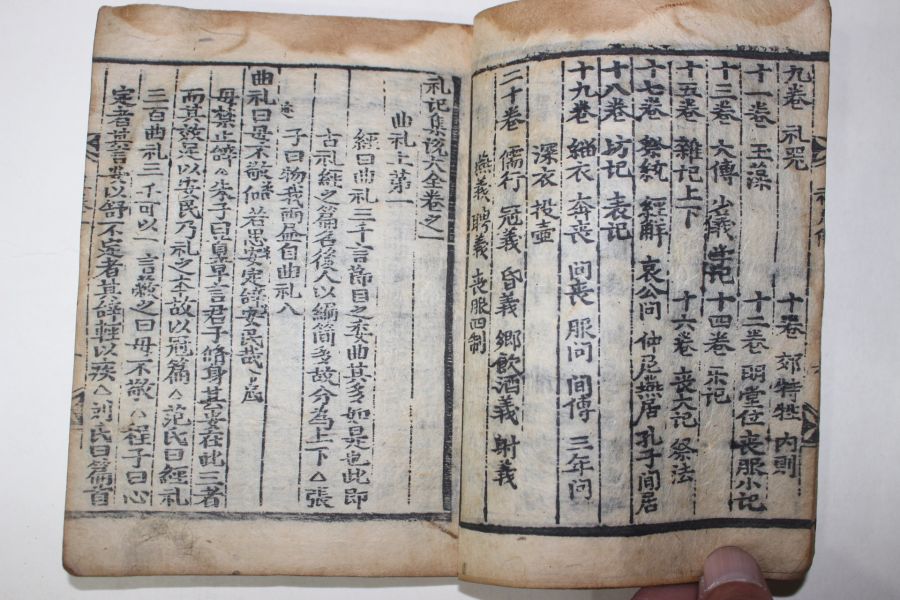 九卷 礼器
十卷 郊特牲 内則
十一卷 玉藻
十二卷 明堂位 喪服小记
十三卷 大傳 少義 学记
十四卷 乐记
十五卷 雜记上下
十六卷 喪大记 祭法
十七卷 祭統 經解 哀公問 仲尼燕居 孔子间居
十八卷 坊记 表记
十九卷 緇衣 奔喪 问喪 服问 间傳 三年问
深衣 投壺
二十卷 儒行 冠義 昏義 鄉飲酒義 射義
燕義 聘義 喪服四制
礼记集说大全卷之一
曲礼上第一
經曰曲礼三千言節目之委曲其多如是也此即
古礼經之篇名後人以編简多故分為上下△張
子曰物我兩盡自曲礼入
曲礼曰毋不敬儼若思安定辞安民哉
毋禁止辞△朱子曰首章言君子脩身其要在此三者
而其效足以安民乃礼之本故以冠篇△范氏曰經礼
三百曲礼三千可以一言蔽之曰毋不敬△程子曰心
定者其言安以舒不定者其辞輕以疾△刘氏曰篇首